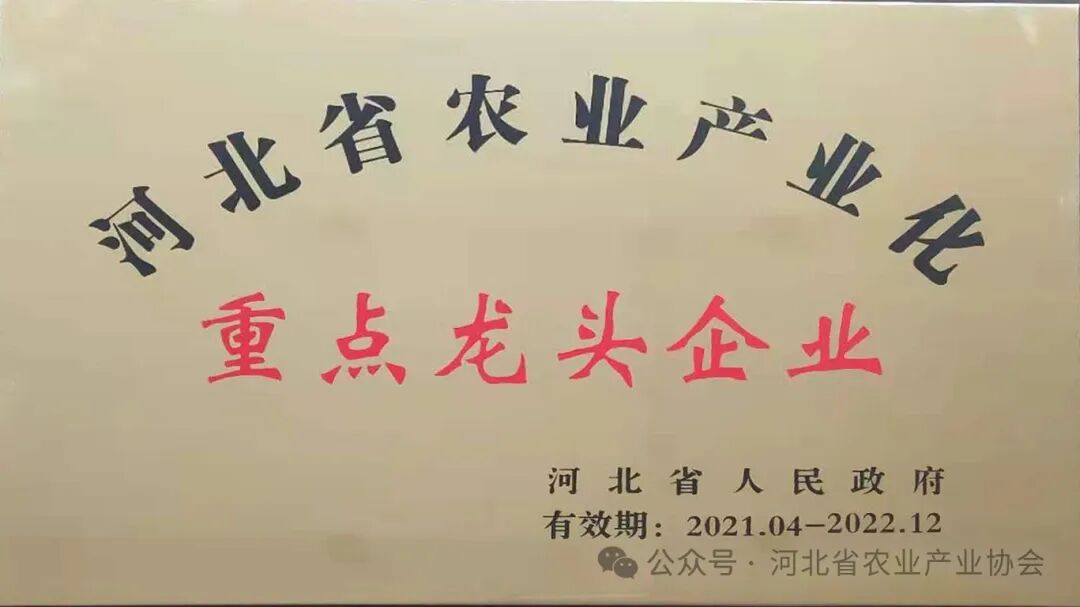 河北省农业产业化
重点龙头企业
河北省人民政府
有效期：2021.04-2022.12
公众号·河北省农业产业协会